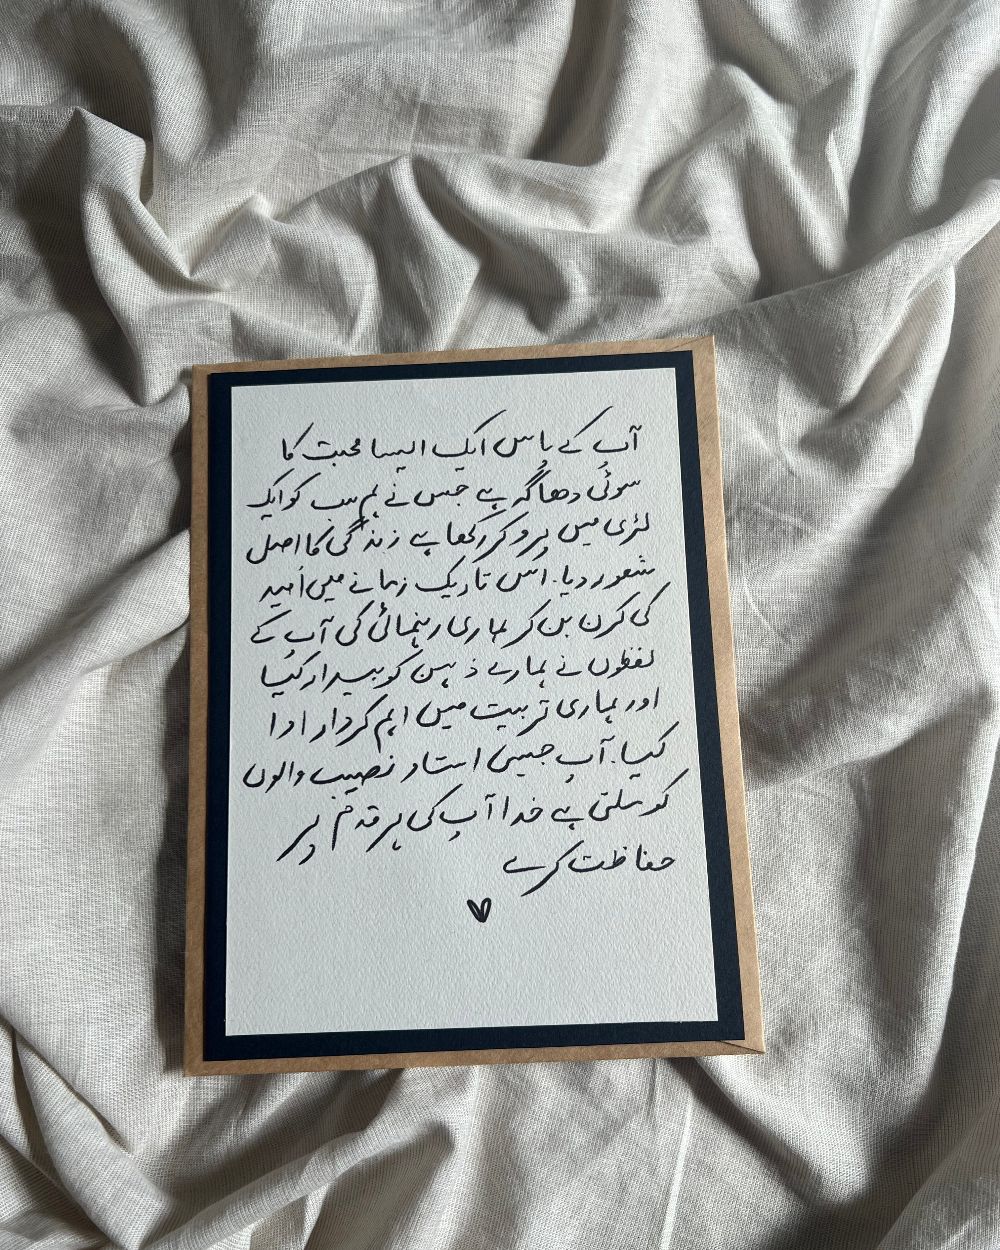 آپ کے پاس ایک ایسا محبت کا
سوئی دھاگہ ہے جس نے ہم سب کو ایک
لڑی میں پرو کر رکھا ہے زندگی کا اصل
شعور دیا. اس تاریک زمانے میں اُمید
کی کرن بن کر ہماری رہنمائی کی آپ کے
لفظوں نے ہمارے ذہن کو بیدار کیا
اور ہماری تربیت میں اہم کردار ادا
کیا. آپ جیسی استاد نصیب والوں
کو ملتی ہے خدا آپ کی ہر قدم پر
حفاظت کرے